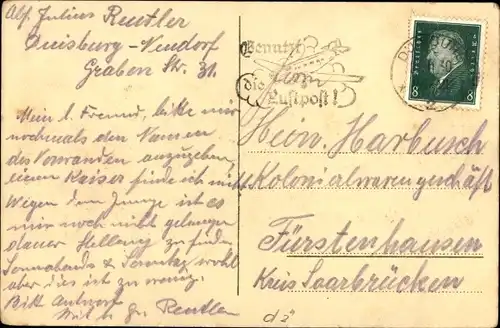 Abs. Julius Rentler
Duisburg-Neudorf
Graben Str. 31.
Mein l. Freund, bitte mir
nochmals den Namen
des anzugeben,
einen Kaiser finde ich nicht
Wegen dem Junge ist es
mir noch nicht gelungen
dauer Stellung zu finden
Sonnabends & Sonntag wohl
aber dies ist zu wenig.
Bitte Antwort
Mit b. Gr. Rentler
Benutzt
die Luftpost!
DEUTSCHES REICH
8 8
Hein. Harbusch
Kolonialwarengeschäft
Fürstenhausen
Kreis Saarbrücken